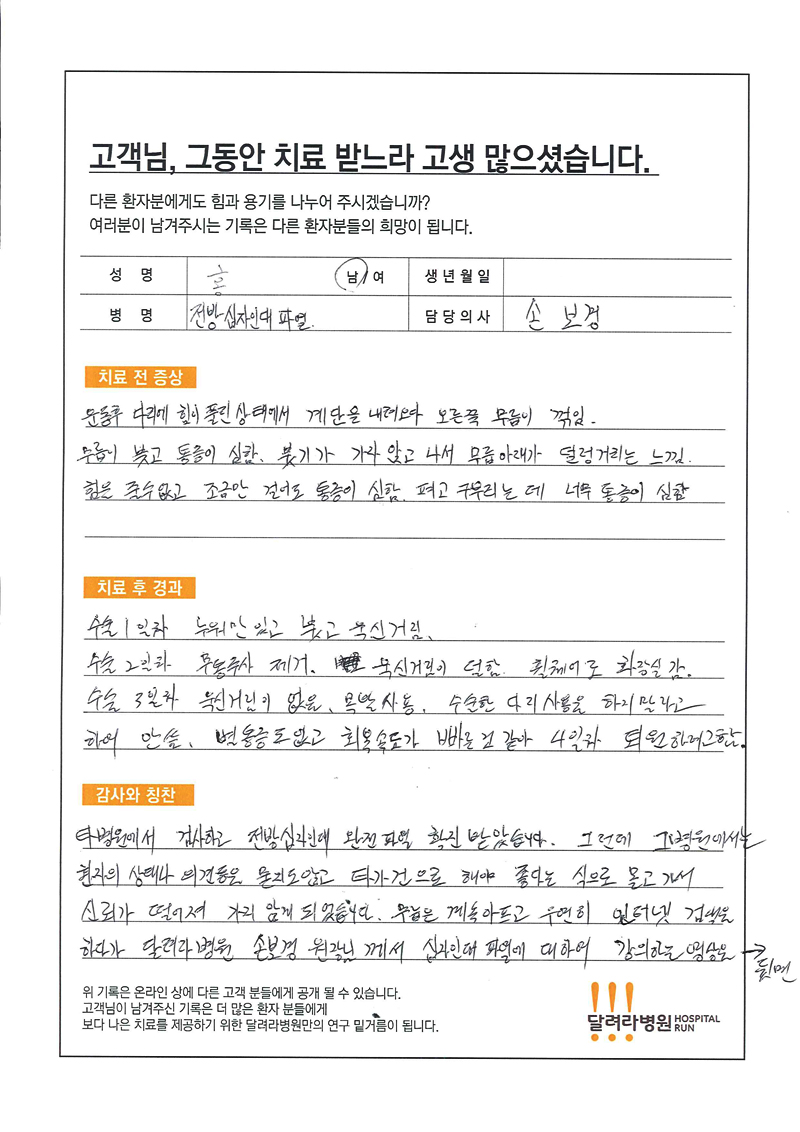 고객님, 그동안 치료 받느라 고생 많으셨습니다.
다른 환자분에게도 힘과 용기를 나누어 주시겠습니까?
여러분이 남겨주시는 기록은 다른 환자분들의 희망이 됩니다.
성 명 홍 남/여 생년월일
병 명 전방십자인대 파열. 담당의사 손 보경
치료 전 증상
운동후 다리에 힘이 풀린 상태에서 계단을 내려오다 오른쪽 무릎이 꺾임.
무릎이 붓고 통증이 심함. 붓기가 가라 앉고 나서 무릎아래가 덜렁거리는 느낌.
힘은 줄수없고 조금만 걸어도 통증이 심함. 펴고 구부리는 데 너무 통증이 심함
치료 후 경과
수술 1일차 누워만 있고 붓고 욱신거림.
수술 2일차 무통주사 제거. 욱신거림이 덜함. 휠체어로 화장실 감.
수술 3일차 욱신거림이 없음. 목발 사용. 수술한 다리사용을 하지말라고
하여 안씀. 별 통증도 없고 회복속도가 빠른 것 같아 4일차 퇴원하려고함.
감사와 칭찬
타병원에서 검사하고 전방십자인대 완전파열 확진 받았습니다. 그런데 그병원에서는
환자의 상태나 의견등은 묻지도않고 타가건으로 해야 좋다는 식으로 몰고가서
신뢰가 떨어져 가지 않게 되었습니다. 무릎은 계속아프고 우연히 인터넷 검색을
하다가 달려라병원 손보경 원장님 께서 십자인대 파열에 대하여 강의하는 영상을 →
뒷면
위 기록은 온라인 상에 다른 고객 분들에게 공개 될 수 있습니다.
고객님이 남겨주신 기록은 더 많은 환자 분들에게
보다 나은 치료를 제공하기 위한 달려라병원만의 연구 밑거름이 됩니다.
달려라병원 HOSPITAL RUN